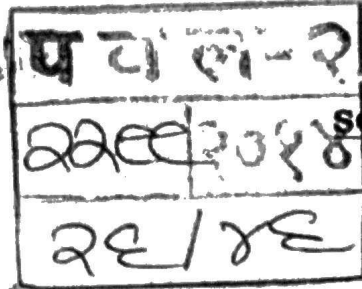 पवल-२
२२९९ २०१४
२६/४६